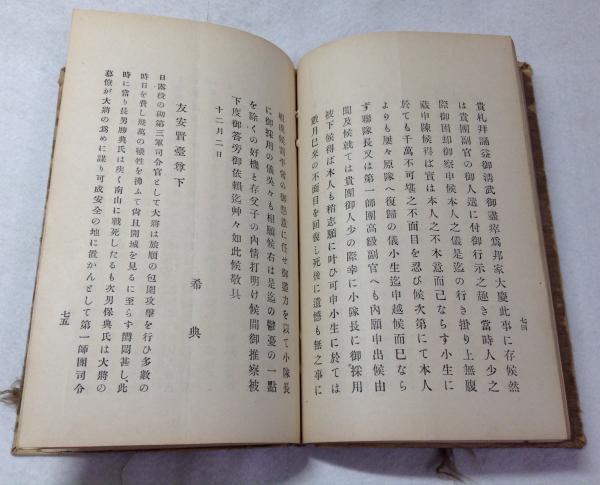 貴札拜誦益御淸武御盡瘁爲邦家大慶此事に存候然
は貴團副官の御人選に付御行示之趣き當時人少之
際御困却御察申候本人之儀是迄の行き掛り上無腹
藏申陳候得ば實は本人之不本意而己ならす小生に
於ても千萬不可堪之不面目を忍び候次第にて本人
よりも屢々原隊へ復歸の儀小生迄申越候而已なら
ず聯隊長又は第一師團高級副官へも內願申出候由
聞及候就ては貴團御人少の際幸に小隊長に御採用
被下候得ば本人も精志願に叶ひ可申小生に於ては
數月已來の不面目を回復し死後に遺憾も無之事に
七四
相成候間平常の御懇誼に任せ御盡力を以て小隊長
に御採用の儀吳々も相願候右は是迄の鬱憂の一點
を除くの好機と存父子の內情打明け候間御推察被
下度御答旁御依賴迄艸々如此候敬具
十二月二日
希典
友安賢臺尊下
日露役の砌第三軍司令官として大將は旅順の包圍攻擊を行ひ多數の
時日を費し幾萬の犧牲を拂ふて尙且開城を見るに至らず懊悶甚し、此
時に當り長男勝典氏は疾く南山に戰死したるも次男保典氏は大將の
幕僚が大將の爲めに謀り可成安全の地に置かんとして第一師團司令
七五